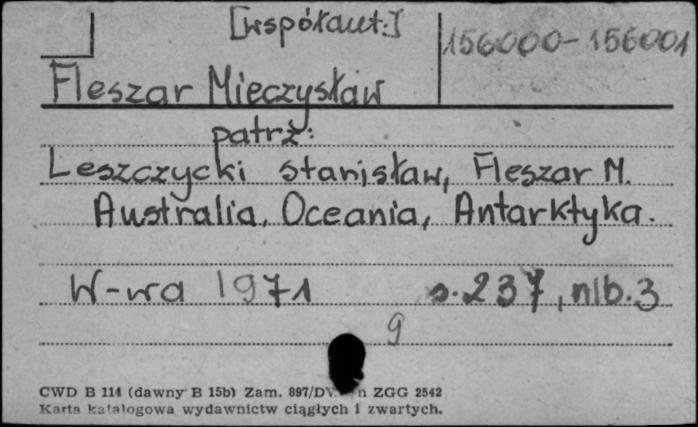 [współaut.]
156000-156001
Fleszar Mieczysław
patrz:
Leszczycki Stanisław, Fleszar M.
Australia, Oceania, Antarktyka.
W-wa 1971 s. 237, nlb. 3
9
CWD B 114 (dawny B 15b) Zam. 897/DV n ZGG 2542
Karta katalogowa wydawnictw ciągłych i zwartych.